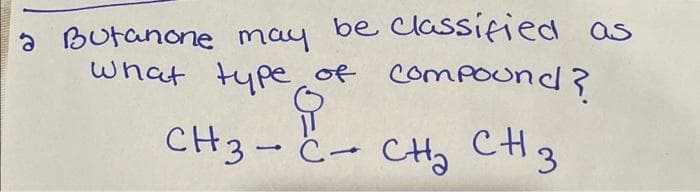 2 Butanone may be classified as
what type of compound?
O
||
CH3 - C - CH2 CH3